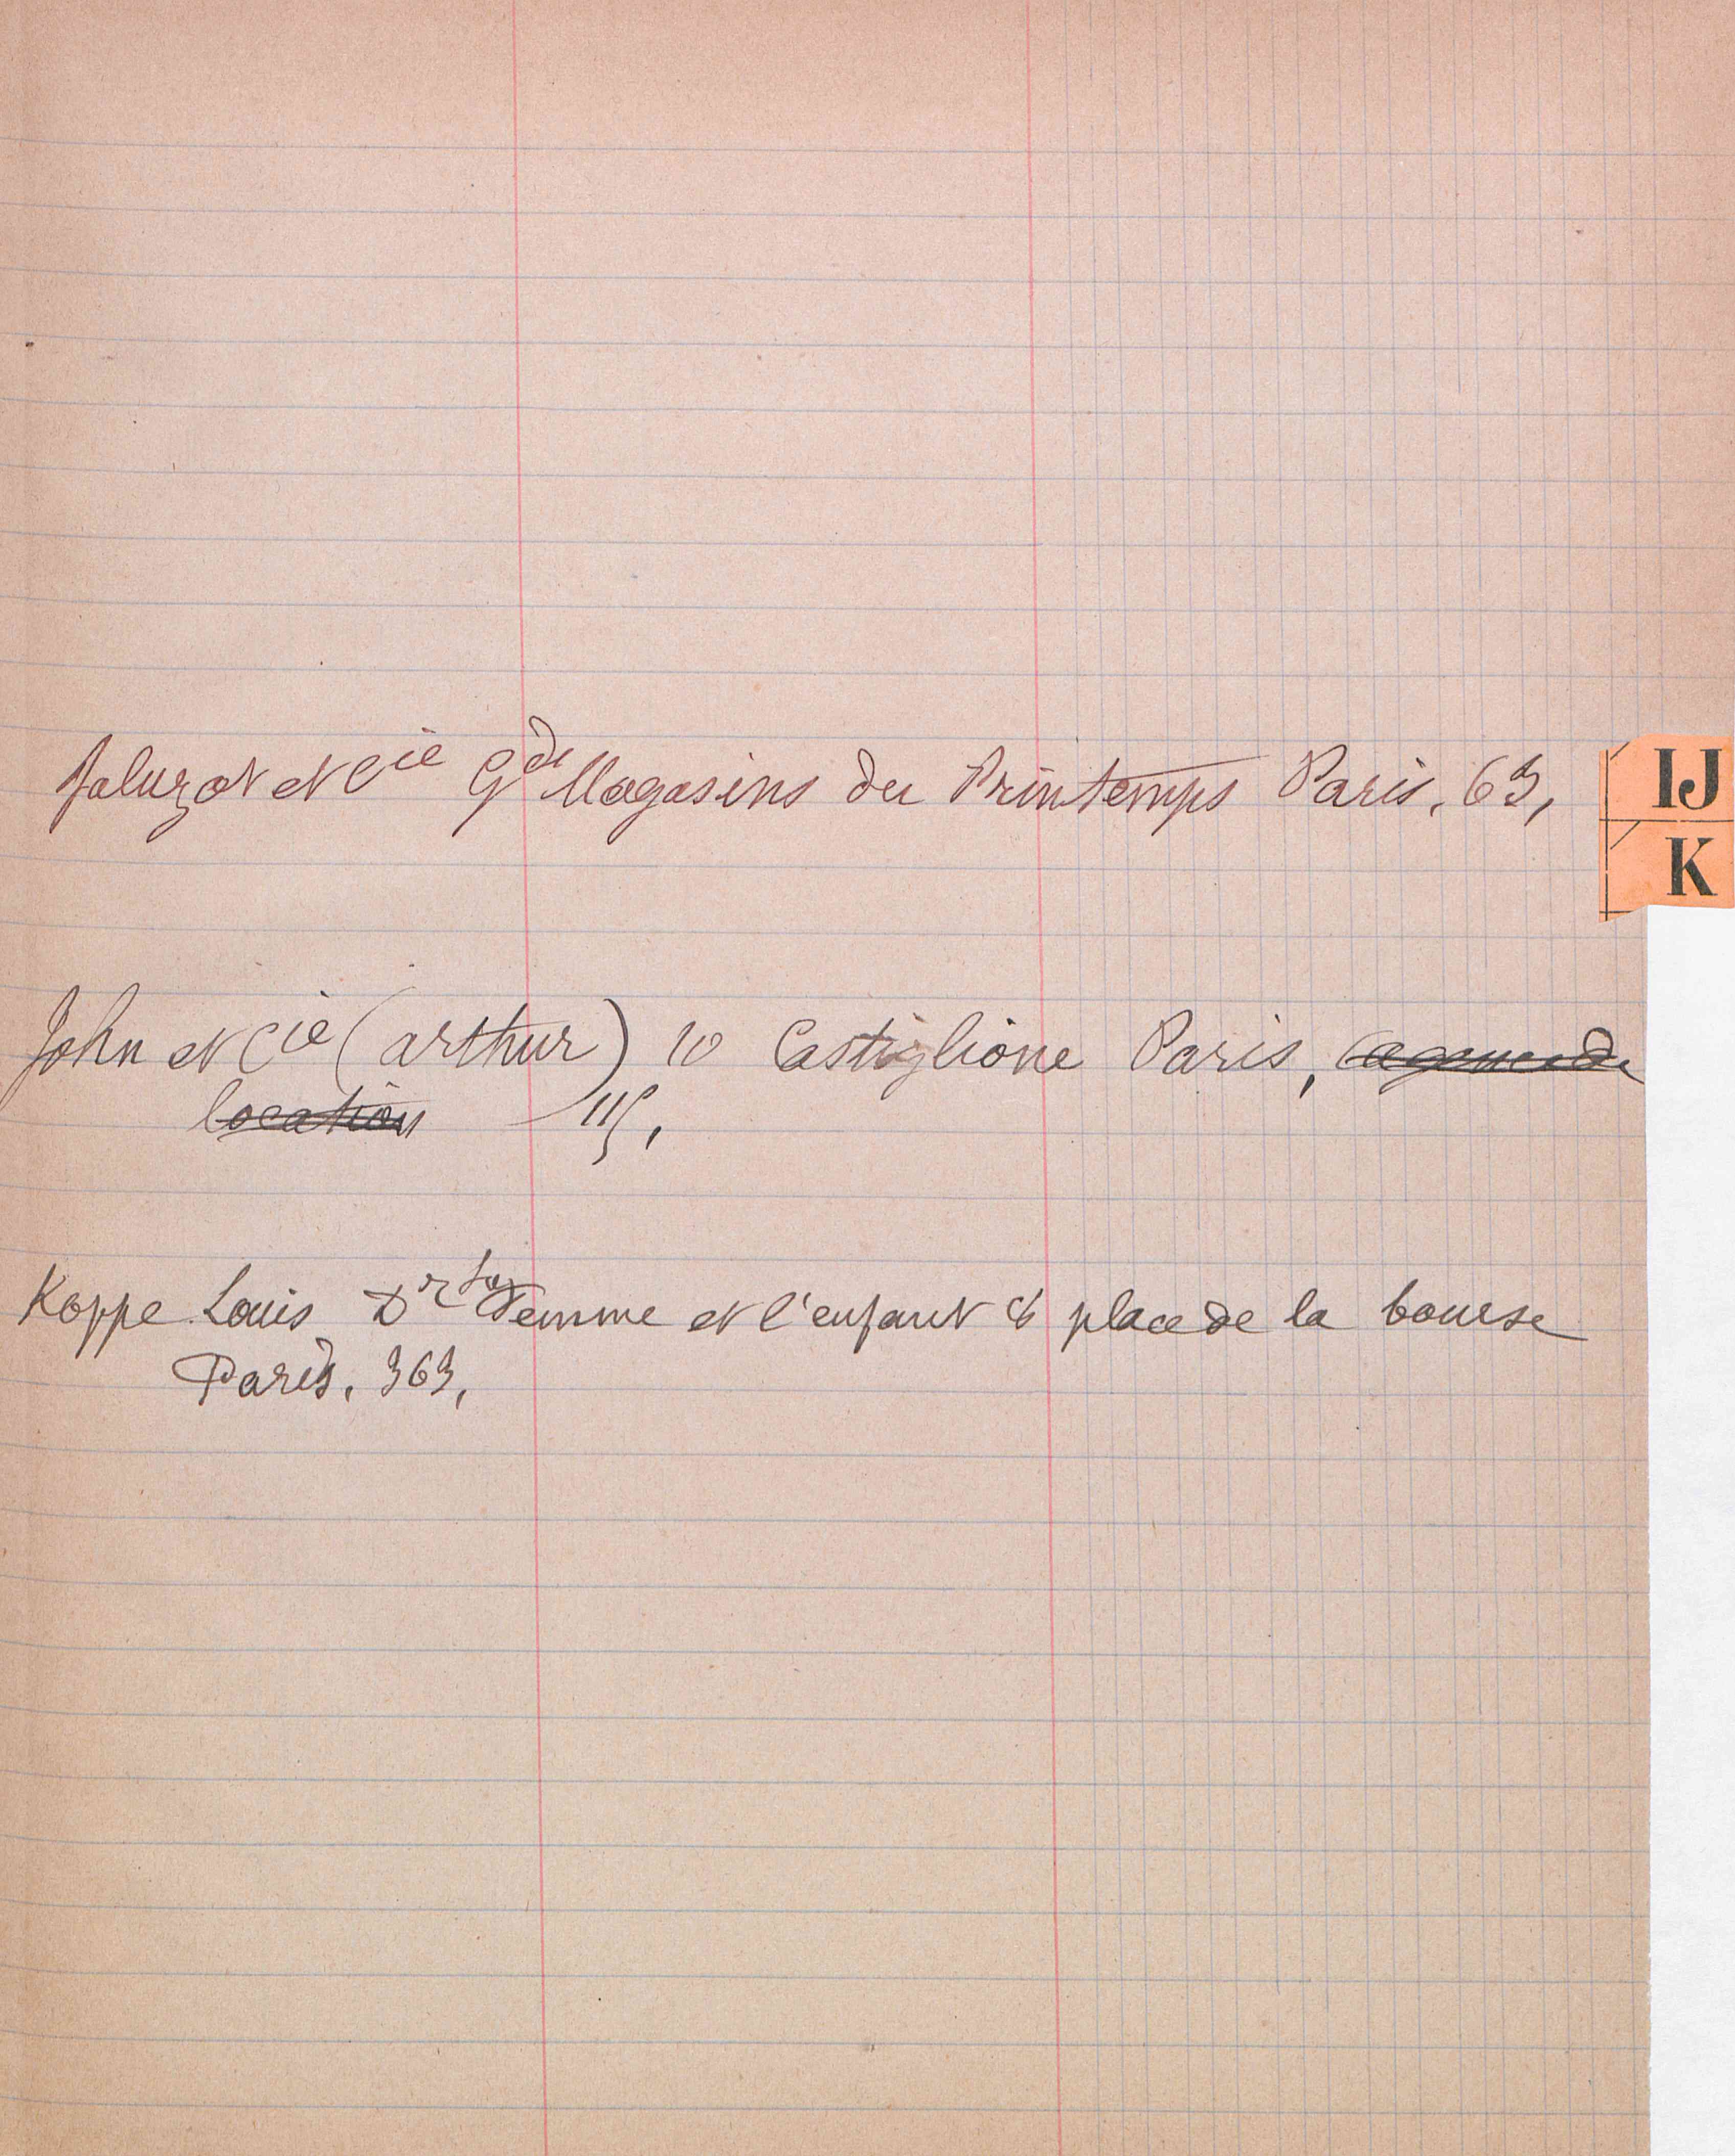 Jaluzot et Cie Gds Magasins du Printemps Paris. 63,
IJ
K
John et Cie (arthur) 10 Castiglione Paris, agence de
location 115,
Koppe Louis Dr La Femme et l'enfant 8 place de la bourse
Paris. 363,